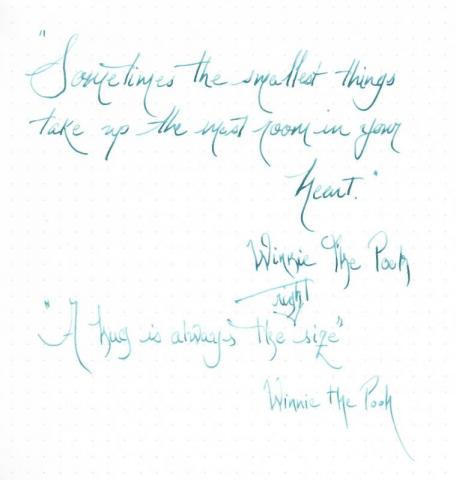 "
Sometimes the smallest things
take up the most room in your
heart."
Winnie The Pooh
right
"A hug is always the size"
Winnie the Pooh